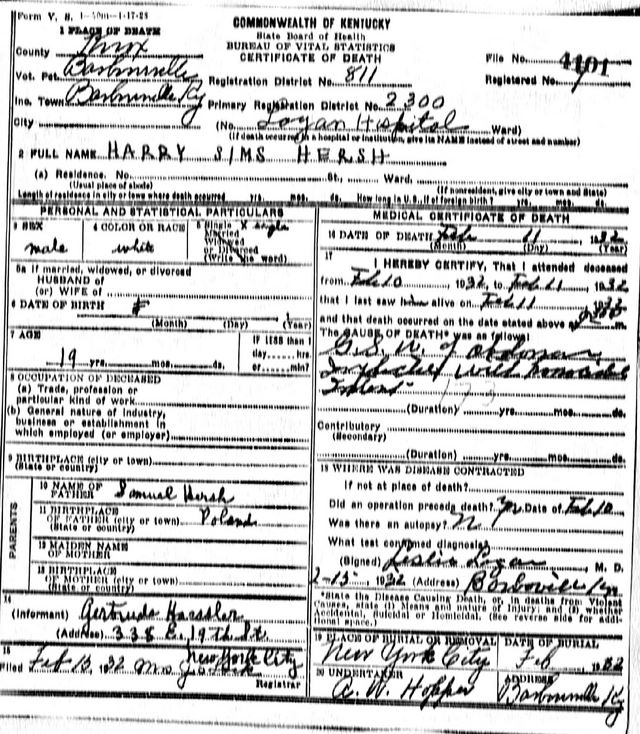 Form V. S. 1
COMMONWEALTH OF KENTUCKY
State Board of Health
BUREAU OF VITAL STATISTICS
CERTIFICATE OF DEATH
1 PLACE OF DEATH
County Knox
File No. 4401
Vot. Pct. Barbourville
Registration District No. 811
Registered No. 7
Inc. Town Barbourville Ky
Primary Registration District No. 2300
City
(No. Logan Hospital Ward)
(If death occurred in a hospital or institution, give its NAME instead of street and number)
2 FULL NAME HARRY SIMS HERSH
(a) Residence. No. St., Ward.
(Usual place of abode) (If nonresident, give city or town and State)
Length of residence in city or town where death occurred yrs. mos. ds. How long in U. S., if of foreign birth? yrs. mos. ds.
PERSONAL AND STATISTICAL PARTICULARS
3 SEX
male
4 COLOR OR RACE
white
5 Single X single
Married
Widowed
or Divorced
(Write the word)
5a If married, widowed, or divorced
HUSBAND of
(or) WIFE of
6 DATE OF BIRTH
(Month) (Day) (Year)
7 AGE
19 yrs. mos. ds.
IF LESS than 1
day hrs.
or min?
8 OCCUPATION OF DECEASED
(a) Trade, profession or
particular kind of work
(b) General nature of industry,
business or establishment in
which employed (or employer)
9 BIRTHPLACE (city or town)
(State or country)
PARENTS
10 NAME OF
FATHER Samuel Hersh
11 BIRTHPLACE
OF FATHER (city or town) Poland
(State or country)
12 MAIDEN NAME
OF MOTHER
13 BIRTHPLACE
OF MOTHER (city or town)
(State or country)
14
(Informant) Gertrude Haessler
(Address) 338 E. 19th St.
New York City
15
Filed Feb 15 1932
Registrar
MEDICAL CERTIFICATE OF DEATH
16 DATE OF DEATH Feb 11 1932
(Month) (Day) (Year)
17
I HEREBY CERTIFY, That I attended deceased
from Feb 10 1932, to Feb 11 1932
that I last saw him alive on Feb 11 1932
and that death occurred on the date stated above at m.
The CAUSE OF DEATH* was as follows:
G.S.W. of Abdomen
Inflicted with homicidal
Intent
173
(Duration) yrs. mos. ds.
Contributory
(Secondary)
(Duration) yrs. mos. ds.
18 WHERE WAS DISEASE CONTRACTED
If not at place of death?
Did an operation precede death? Date of Feb 10
Was there an autopsy? N
What test confirmed diagnosis
(Signed) Leslie Logan M. D.
2-15-1932 (Address) Barbourville Ky
*State the Disease Causing Death, or, in deaths from Violent
Causes, state (1) Means and nature of Injury; and (2) whether
Accidental, Suicidal or Homicidal. (See reverse side for addi-
tional space.)
19 PLACE OF BURIAL OR REMOVAL
New York City
DATE OF BURIAL
Feb 1932
20 UNDERTAKER
A. W. Hopper
ADDRESS
Barbourville Ky